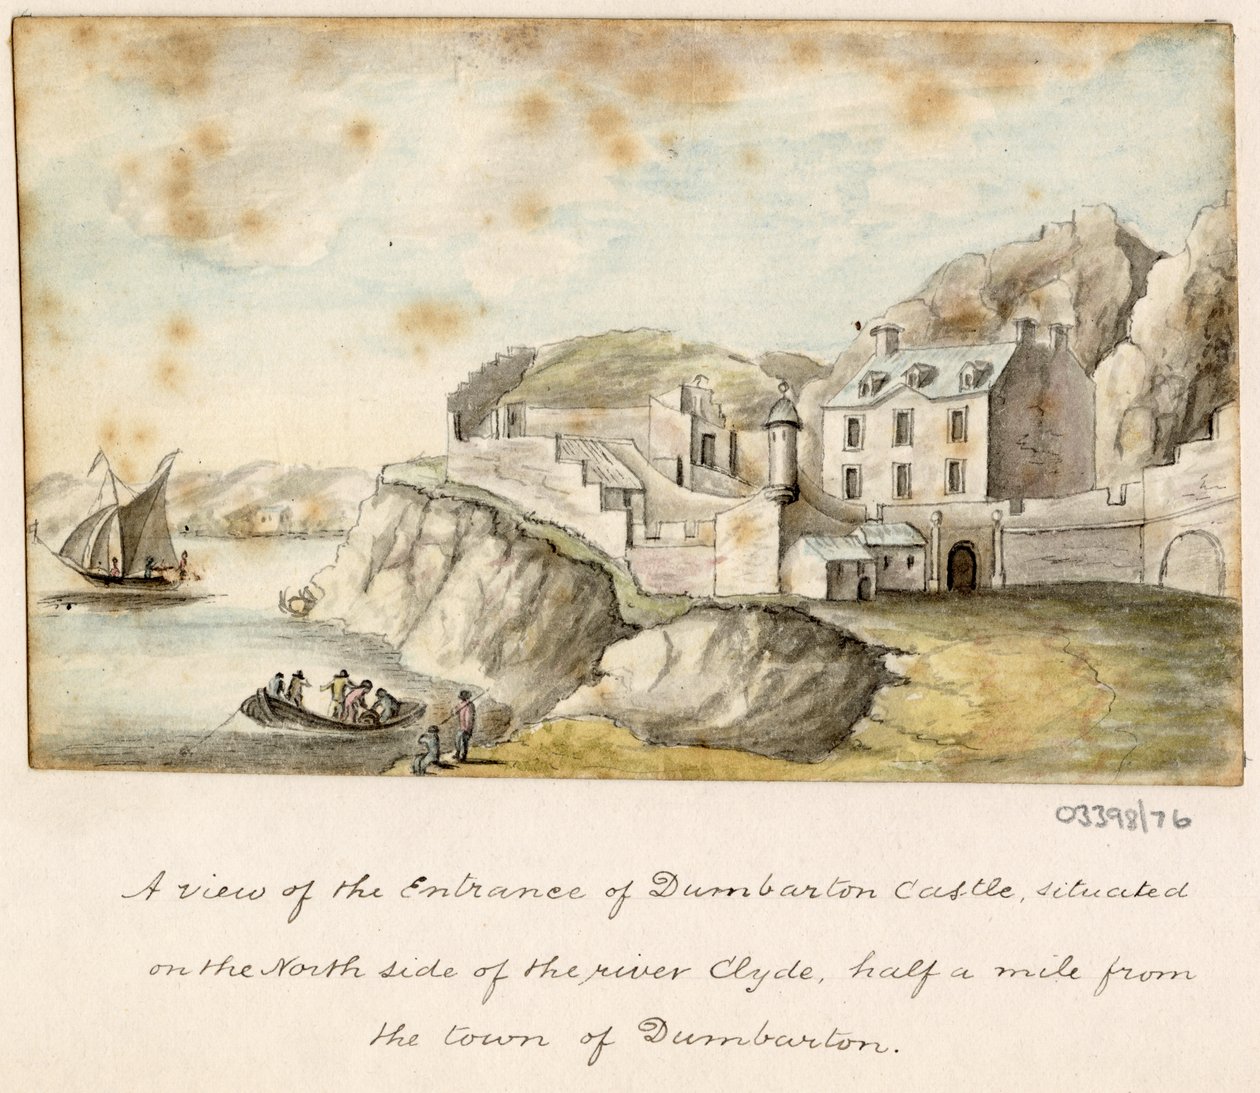 03398/76
A view of the Entrance of Dumbarton Castle, situated
on the North side of the river Clyde, half a mile from
the town of Dumbarton.